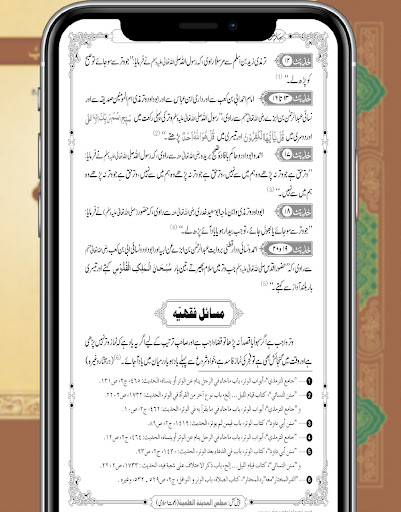 حدیث ۱۲ ترمذی زید بن اسلم سے مرسلاً راوی، کہ رسول اللہ صلی اللہ تعالیٰ علیہ وسلم نے فرمایا: ’’جو وتر سے سو جائے تو صبح
کو پڑھ لے۔‘‘ (1)
حدیث ۱۳ تا ۱۶ امام احمد ابی بن کعب سے اور دارمی ابن عباس سے اور ابو داود و ترمذی ام المؤمنین صدیقہ سے اور
نسائی عبدالرحمٰن بن ابزے رضی اللہ تعالیٰ عنہم سے راوی، ’’رسول اللہ صلی اللہ تعالیٰ علیہ وسلم وتر کی پہلی رکعت میں سَبِّحِ اسْمَ رَبِّكَ الْاَعْلَى
اور دوسری میں قُلْ يٰۤاَيُّهَا الْكٰفِرُوْنَ اور تیسری میں قُلْ هُوَ اللّٰهُ اَحَدٌ پڑھتے۔‘‘ (2)
حدیث ۱۷ احمد و ابو داود و حاکم بریدہ رضی اللہ تعالیٰ عنہ سے راوی، کہ رسول اللہ صلی اللہ تعالیٰ علیہ وسلم نے فرمایا:
’’وتر حق ہے جو وتر نہ پڑھے وہ ہم میں سے نہیں، وتر حق ہے جو وتر نہ پڑھے وہ ہم میں سے نہیں، وتر حق ہے جو وتر نہ پڑھے وہ
ہم میں سے نہیں۔‘‘ (3)
حدیث ۱۸ ابو داود و ترمذی و ابن ماجہ ابو سعید خدری رضی اللہ تعالیٰ عنہ سے راوی، کہ حضور (صلی اللہ تعالیٰ علیہ وسلم) نے فرمایا:
’’جو وتر سے سو جائے یا بھول جائے، تو جب بیدار ہو یا یاد آئے پڑھ لے۔‘‘ (4)
حدیث ۱۹ و ۲۰ احمد و نسائی و دارقطنی بروایت عبدالرحمٰن بن ابزے عن ابیہ اور ابو داود و نسائی ابی بن کعب رضی اللہ تعالیٰ عنہم
سے راوی، کہ ’’حضور اقدس صلی اللہ تعالیٰ علیہ وسلم جب وتر میں سلام پھیرتے، تین بار سُبْحَانَ الْمَلِكِ الْقُدُّوْسِ کہتے اور تیسری
بار بلند آواز سے کہتے۔‘‘ (5)
مسائل فقهيّه
وتر واجب ہے اگر سہواً یا قصداً نہ پڑھا تو قضا واجب ہے اور صاحب ترتیب کے لیے اگر یہ یاد ہے کہ نماز وتر نہیں پڑھی
ہے اور وقت میں گنجائش بھی ہے تو فجر کی نماز فاسد ہے، خواہ شروع سے پہلے یاد ہو یا درمیان میں یاد آ جائے۔ (6) (درمختار وغیرہ)
1 ..... "جامع الترمذي"، أبواب الوتر، باب ماجاء في الرجل ينام عن الوتر أو ينساه، الحديث: ٤٦٥، ج٢، ص١٣.
2 ..... "سنن النسائي"، كتاب قيام الليل... إلخ، باب نوع آخر من القراءة في الوتر، الحديث: ١٧٣٢، ص٢٢٠٢.
و "جامع الترمذي"، أبواب الوتر، باب ماجاء في ما يقرأ به في الوتر، الحديث: ٤٦٢، ج٢، ص١٠.
3 ..... "سنن أبي داود"، كتاب الوتر، باب فيمن لم يوتر، الحديث: ١٤١٩، ج٢، ص٨٩.
4 ..... "جامع الترمذي"، أبواب الوتر، باب ماجاء في الرجل ينام عن الوتر أو ينساه، الحديث: ٤٦٤، ج٢، ص١٢.
5 ..... "سنن أبي داود"، كتاب الوتر، باب في الدعاء بعد الوتر، الحديث: ١٤٣٠، ج٢، ص٩٣.
و "سنن النسائي"، كتاب قيام الليل... إلخ، باب ذكر الاختلاف على شعبة فيه، الحديث: ١٧٣٣، ص٢٢٠٢.
6 ..... "الدرالمختار" معه "ردالمحتار"، كتاب الصلاة، باب الوتر و النوافل، ج٢، ص٥٢٩، ٥٣٢، وغيره.
پیش کش: مجلس المدینة العلمیة (دعوتِ اسلامی)